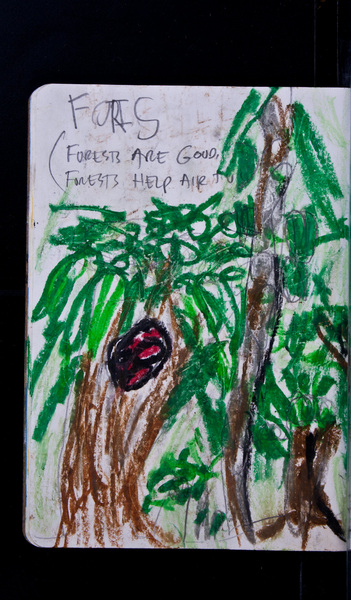 (FORESTS ARE GOOD,
FORESTS HELP AIR